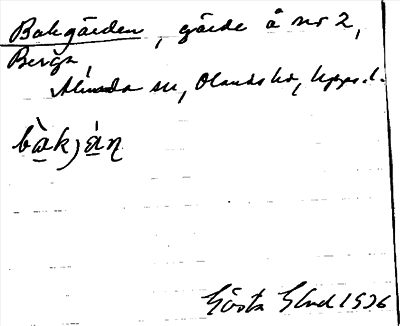 Bakgärden, gärde å nr 2,
Berga,
Almunda sn, Olands hd, Upps.l.
bàkjáṇ
Gösta 1936